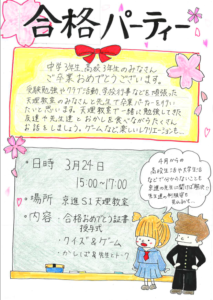 合格パーティー
中学3年生、高校3年生のみなさん
ご卒業おめでとうございます。
受験勉強やクラブ活動、学校行事などを頑張った
天理教室のみなさんと先生で卒業パーティーを行い
たいと思います。天理教室で一緒に勉強してきた
友達や先生とおかしを食べながらたくさん
お話をしましょう。ゲームなど楽しいレクリエーションも…
・日時 3月24日
15:00〜17:00
・場所 京進S1天理教室
・内容 ・合格おめでとう証書
授与式
・クイズ&ゲーム
・おかしパ&先生とトーク
4月からの
高校生活や大学生活
などで分からないことも
京進の先生に聞けば解決
先生達の